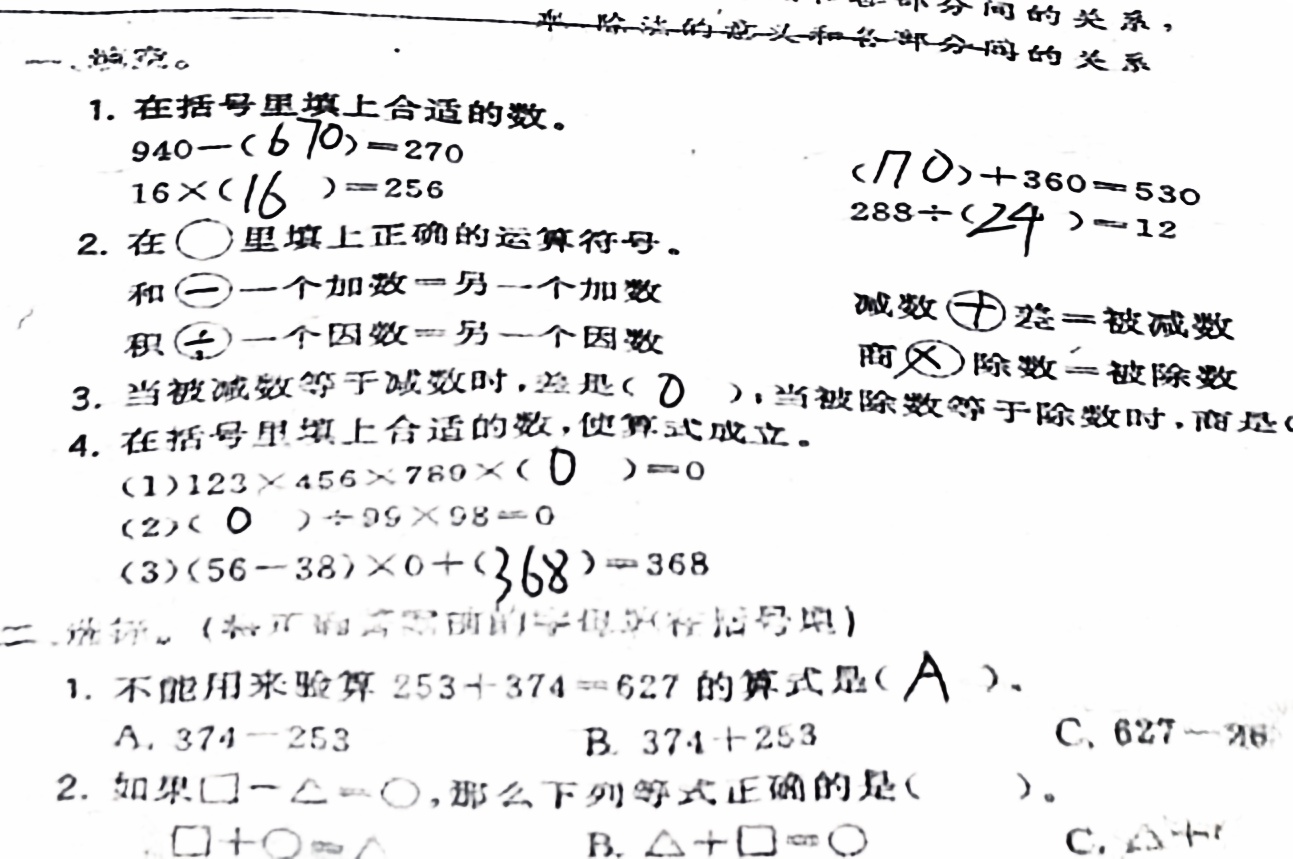 部分间的关系，
除法的意义和各部分间的关系
一、填空。
1. 在括号里填上合适的数。
940－(670)＝270
(170)＋360＝530
16×(16)＝256
288÷(24)＝12
2. 在○里填上正确的运算符号。
和⊖一个加数＝另一个加数
减数⊕差＝被减数
积(÷)一个因数＝另一个因数
商⊗除数＝被除数
3. 当被减数等于减数时，差是(0)，当被除数等于除数时，商是(
4. 在括号里填上合适的数，使算式成立。
(1)123×456×789×(0)＝0
(2)(0)÷99×98＝0
(3)(56－38)×0＋(368)＝368
二、选择。(将正确答案前的字母填在括号里)
1. 不能用来验算 253＋374＝627 的算式是(A)。
A. 374－253
B. 374＋253
C. 627－
2. 如果□－△＝○，那么下列等式正确的是( )。
□＋○＝△
B. △＋□＝○
C. △＋